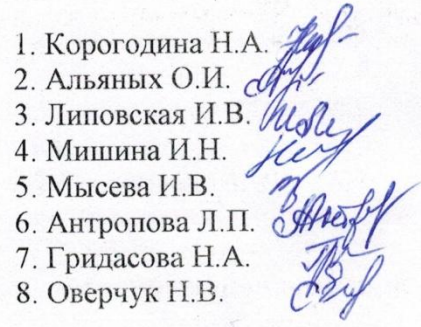 1. Корогодина Н.А.
2. Альяных О.И.
3. Липовская И.В.
4. Мишина И.Н.
5. Мысева И.В.
6. Антропова Л.П.
7. Гридасова Н.А.
8. Оверчук Н.В.